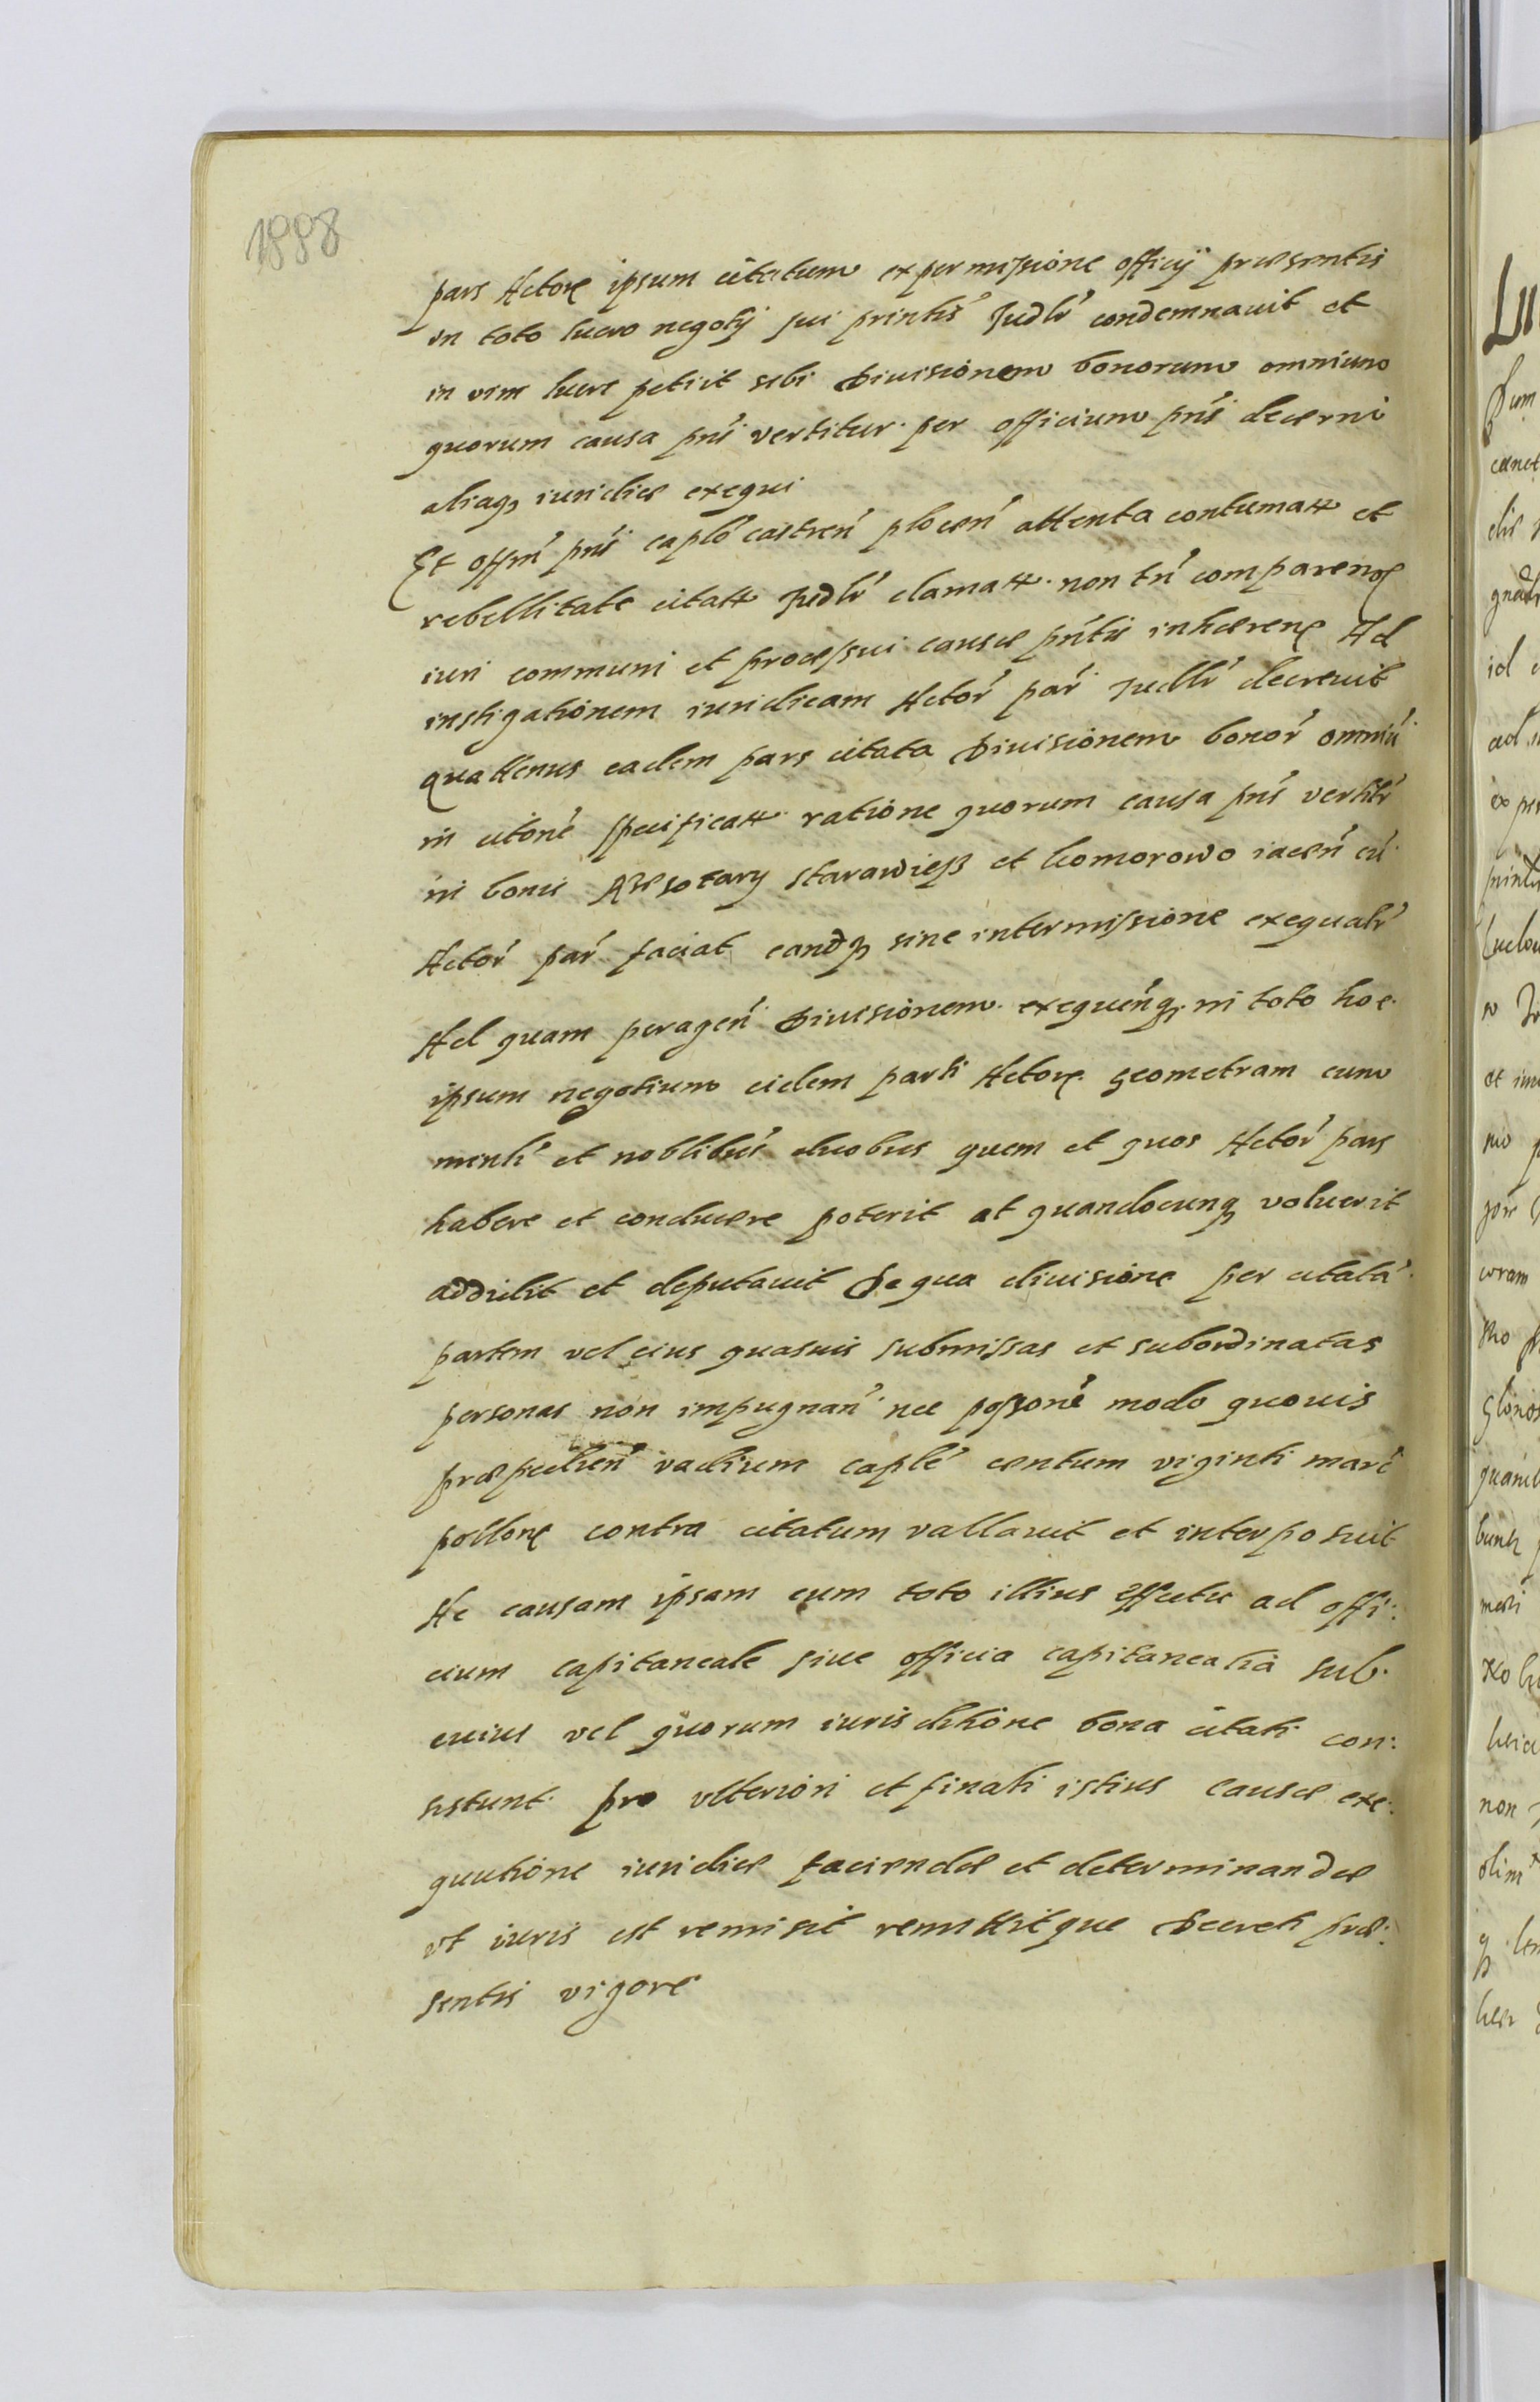 1888
pars Actorę ipsum citatum ex permissione officij præsentis
in toto lucro negotij sui printis Judlr condemnauit et
in vim lucri petiit sibi Diuisionem bonorum omnium
quorum causa pns vertitur per officium pns decerni
aliaq iuridice exequi
Et offm pns caplo castren plocen attenta contumatt et
rebellitate citatt Judlr clamatt non tn comparenę
iuri communi et processui causæ pntis inhærenę Ad
instigationem iuridicam Actor par Judlr decreuit
quattenus eadem pars citata Diuisionem bonor omniu
in citone specificatt ratione quorum causa pns vertitr
in bonis starawieß et komorowo iacen cu
Actor par faciat eandq sine intermissione exequatr
Ad quam peragen Diuisionem exequenq in toto hoc
ipsum negotium eidem parti Actorę geometram cum
minli et noblibus duobus quem et quos Actor pars
habere et conducere poterit at quandocunq voluerit
addidit et deputauit De qua diuisione per citata
partem vel eius quasuis submissas et subordinatas
personas non impugnan nec possone modo quouis
præpedien vadium caplo centum viginti marc
pollonę contra citatum vallauit et interposuit
Ac causam ipsam cum toto illius effectu ad offi:
cium capitaneale siue officia capitanealia sub
cuius vel quorum iurisditione bona citati con:
sistunt pro vlteriori et finali istius causæ exe:
quutione iuridice faciendæ et determinandæ
vt iuris est remisit remittitque Decreti præ:
sentis vigore